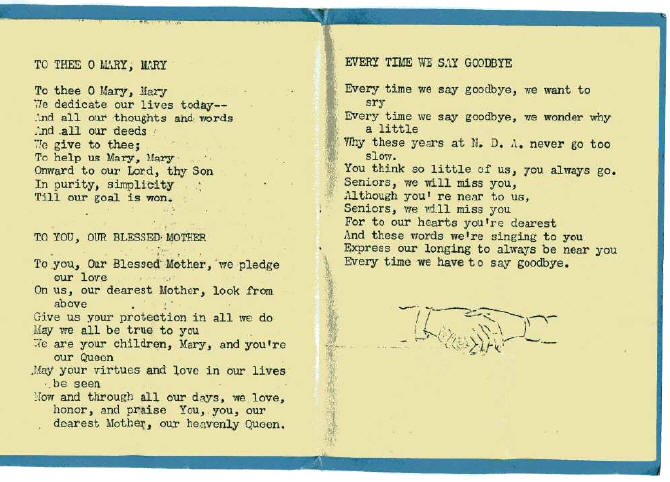 TO THEE O MARY, MARY
To thee O Mary, Mary
We dedicate our lives today--
And all our thoughts and words
And all our deeds
We give to thee;
To help us Mary, Mary
Onward to our Lord, thy Son
In purity, simplicity
Till our goal is won.
TO YOU, OUR BLESSED MOTHER
To you, Our Blessed Mother, we pledge
our love
On us, our dearest Mother, look from
above
Give us your protection in all we do
May we all be true to you
We are your children, Mary, and you're
our Queen
May your virtues and love in our lives
be seen
Now and through all our days, we love,
honor, and praise You, you, our
dearest Mother, our heavenly Queen.
EVERY TIME WE SAY GOODBYE
Every time we say goodbye, we want to
sry
Every time we say goodbye, we wonder why
a little
Why these years at N. D. A. never go too
slow.
You think so little of us, you always go.
Seniors, we will miss you,
Although you' re near to us,
Seniors, we will miss you
For to our hearts you're dearest
And these words we're singing to you
Express our longing to always be near you
Every time we have to say goodbye.